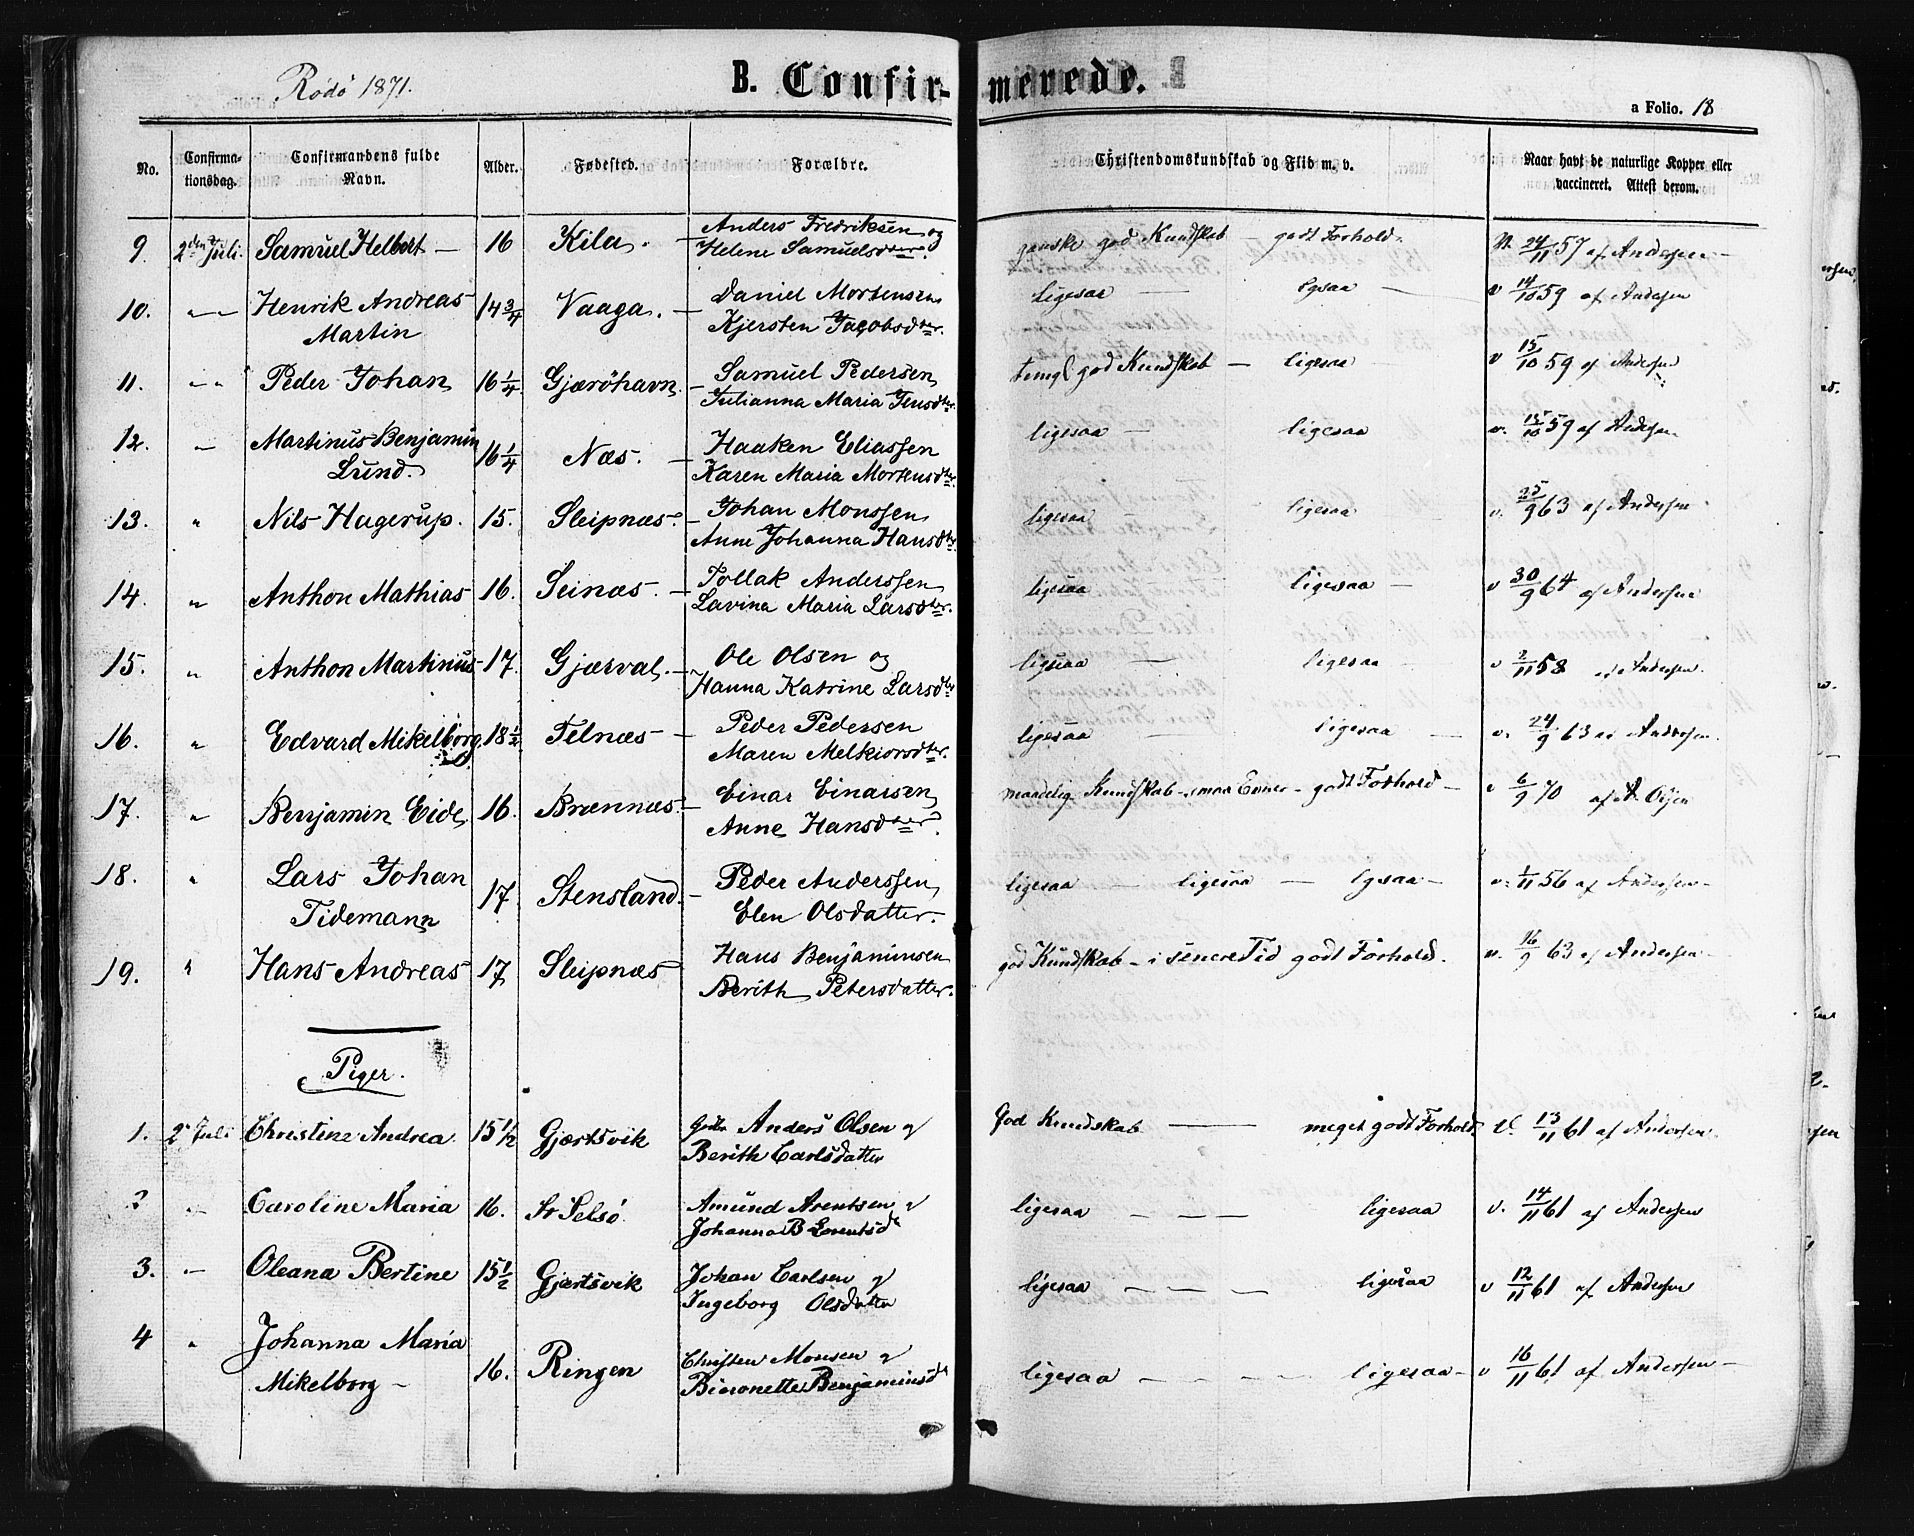 Rödö 1871.
B. Confir- merede.
a Folio. 18
No. Confirma-tionsdag. Confirmandens fulde Navn. Alder. Fødested. Forældre. Christendomskundskab og Flid m. v. Naar havt de naturlige Kopper eller vaccineret. Attest derom.
9. 2den Juli. Samuel Helbert — 16 Kila. — Anders Fredriksen og ganske god Kundskab — godt Forhold. v. 24/11 57 af Andersen —
Helene Samuelsdter.
10. " " Henrik Andreas 14 3/4 Vaaga. — Daniel Mortensen Ligesaa — lgsaa — v 14/10 59 af Andersen
Martin Kjersten Jacobsdter.
11. " " Peder Johan 16 1/4 Gjæröhavn. — Samuel Pedersen temgl god Kundskab — ligesaa v 15/10 59 af Andersen
Julianna Maria Jensdter.
12. " Martinus Benjamin 16 1/4 Næs. — Haaken Eliassen ligesaa — ligesaa v. 15/10 59 af Andersen
Lund. Karen Maria Mortensdter.
13. " Nils Hagerup. 15. Sleipnæs. — Johan Monssen ligesaa ligesaa v. 25/9 63 af Andersen
Anne Johanna Hansdter.
14. " Anthon Mathias 16. Seinæs. — Tollak Anderssen ligesaa ligesaa — v 30/9 64 af Andersen
Lavina Maria Larsdter.
15. " Anthon Martinus 17. Gjærval. — Ole Olsen og ligesaa — ligesaa — v 2/11 58 af Andersen.
Hanna Katrine Larsdter
16. " Edvard Mikelborg 18 1/2 Telnæs — Peder Pedersen ligesaa — ligesaa — v. 24/9 63 af Andersen.
Maren Melkiorsdter.
17. " Benjamin Eide 16. Brænnæs. — Einar Einarsen maadelig Kundskab — smaa Evner — godt Forhold — v 6/9 70 af A Olsen
Anne Hansdter.
18. " Lars Johan 17 Stensland. — Peder Anderssen ligesaa — ligesaa — lgsaa — v. 1/11 56 af Andersen —
Tidemann Elen Olsdatter.
19. " Hans Andreas 17 Sleipnæs Hans Benjaminsen god Kundskab — i senere Tid godt Forhold. v. 16/9 63 af Andersen —
Berith Petersdatter.
Piger.
1. 2 Juli Christine Andrea 15 1/2 Gjærtsvik Anders Olsen og God Kundskab — — meget godt Forhold. v. 13/11 61 af Andersen.
Berith Carlsdatter
2 " Caroline Maria 16. St Selsö Amund Arentsen og ligesaa — — — ligesaa v. 14/11 61 af Andersen
Johanna B Lorentsdr
3. — Oleana Bertine 15 1/2 Gjærtsvik Johan Carlsen og ligesaa — — — ligesaa v 12/11 61 af Andersen
Ingeborg Olsdatter
4 " Johanna Maria 16. Ringen Christen Monsen og ligesaa — — — — ligesaa — v 16/11 61 af Andersen —
Mikelborg — Benjaminsdr